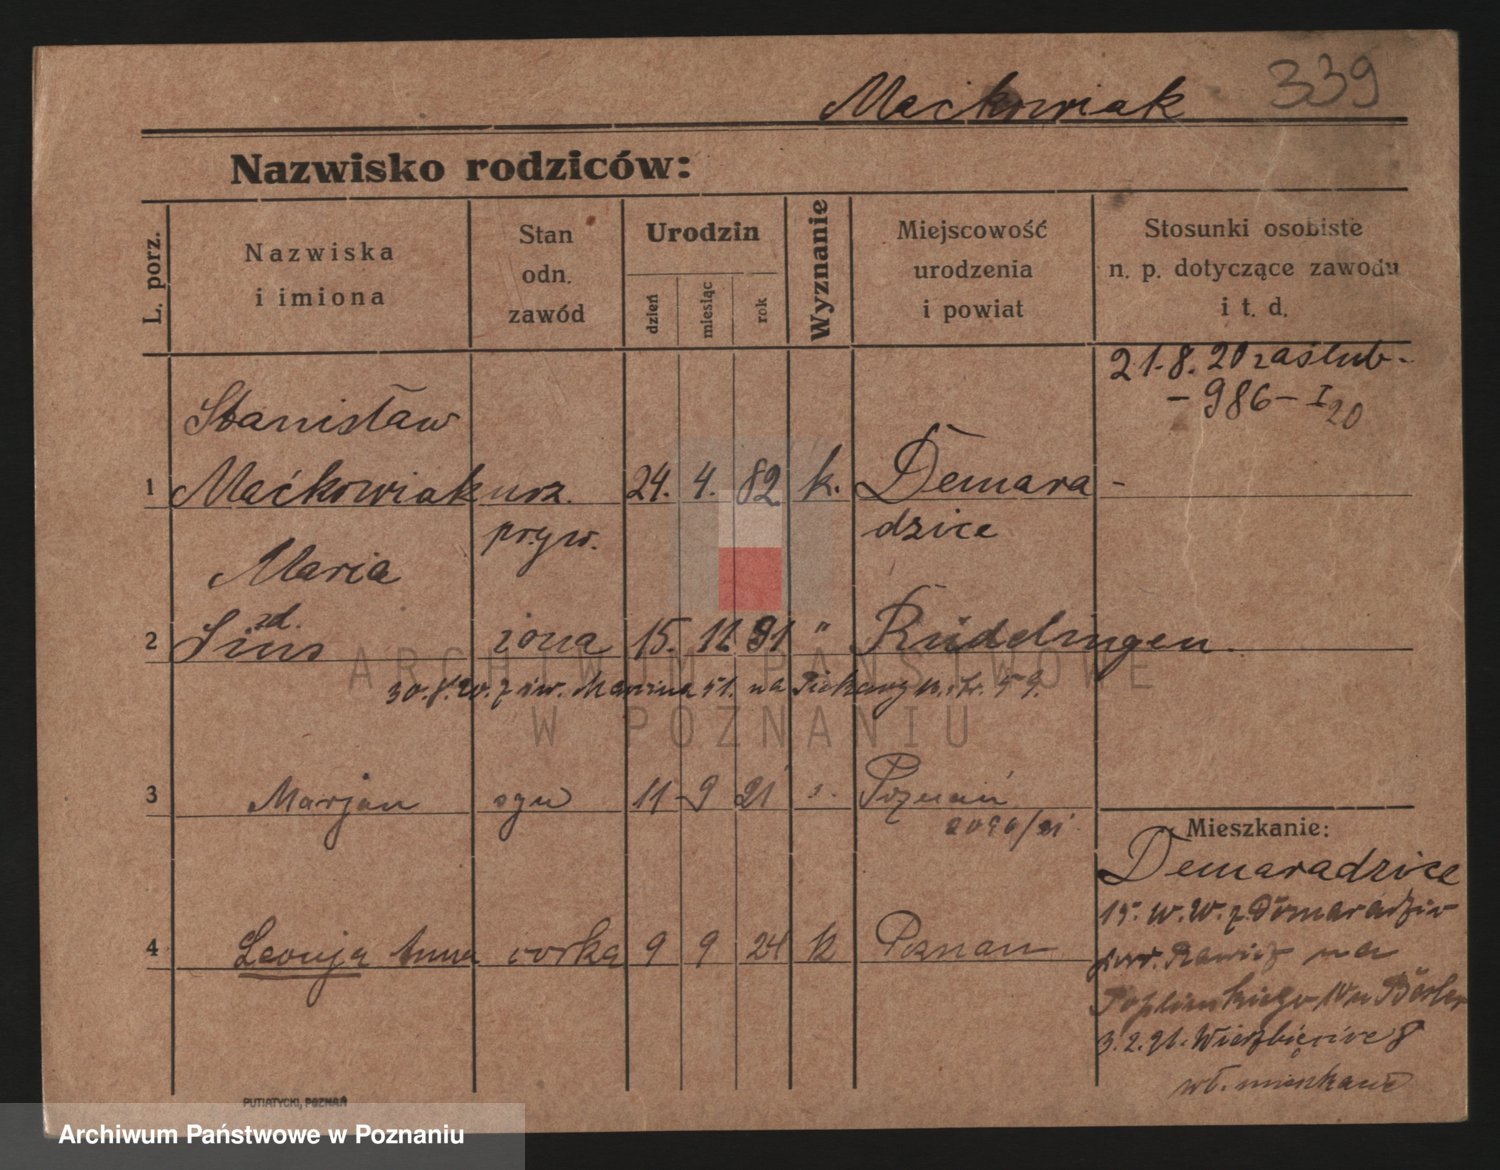 Maćkowiak 339
Nazwisko rodziców:
L. porz.
Nazwiska
i imiona
Stan
odn.
zawód
Urodzin
dzień
miesiąc
rok
Wyznanie
Miejscowość
urodzenia
i powiat
Stosunki osobiste
n. p. dotyczące zawodu
i t. d.
21.8.20 zaślub.
-986-I 20
Stanisław
1 Maćkowiak urz. 24. 4. 82 k. Demara -
pryw. dzice
Maria
zd.
2 żona 15. 12. 91 " Rüdelingen.
30.8.20. z św. Marcina 51. na
3 Marjan syn 11 9 21 Poznań
2090/21.
Mieszkanie:
Demaradzice
15. w.
4 Leonja Anna córka 9 9 24 k Poznań
pow. Rawicz na
3.2.21. Wierzbięcice 8
wł. mieszkanie
PUTIATYCKI, POZNAŃ
ARCHIWUM PAŃSTWOWE
W POZNANIU
Archiwum Państwowe w Poznaniu